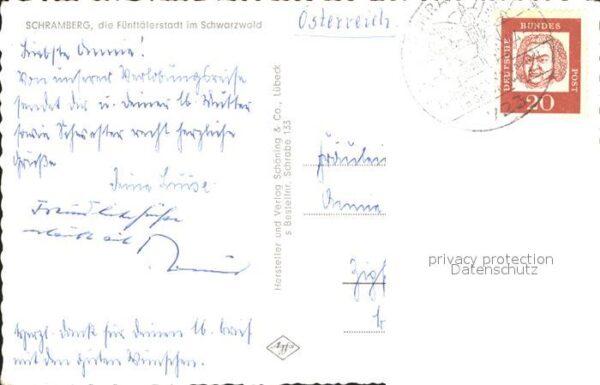 SCHRAMBERG, die Fünftälerstadt im Schwarzwald
Liebste Anna!
Von unserer Verlobungsreise
sendet dir u. deiner lb. Mutter
sowie Schwester recht herzliche
Grüße
Anna Luise.
Herzl. Dank für deinen lb. Brief
mit den guten Wünschen.
Hersteller und Verlag Schöning & Co., Lübeck
s Bestellnr. Schrabe 133
Agfa
Österreich
DEUTSCHE BUNDES POST
20
Fräulein
Anna
privacy protection
Datenschutz